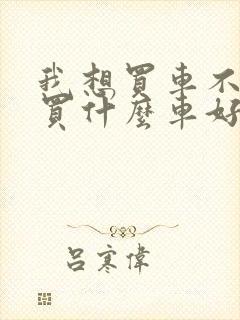 我想買車不
買什麼車好
呂寒偉